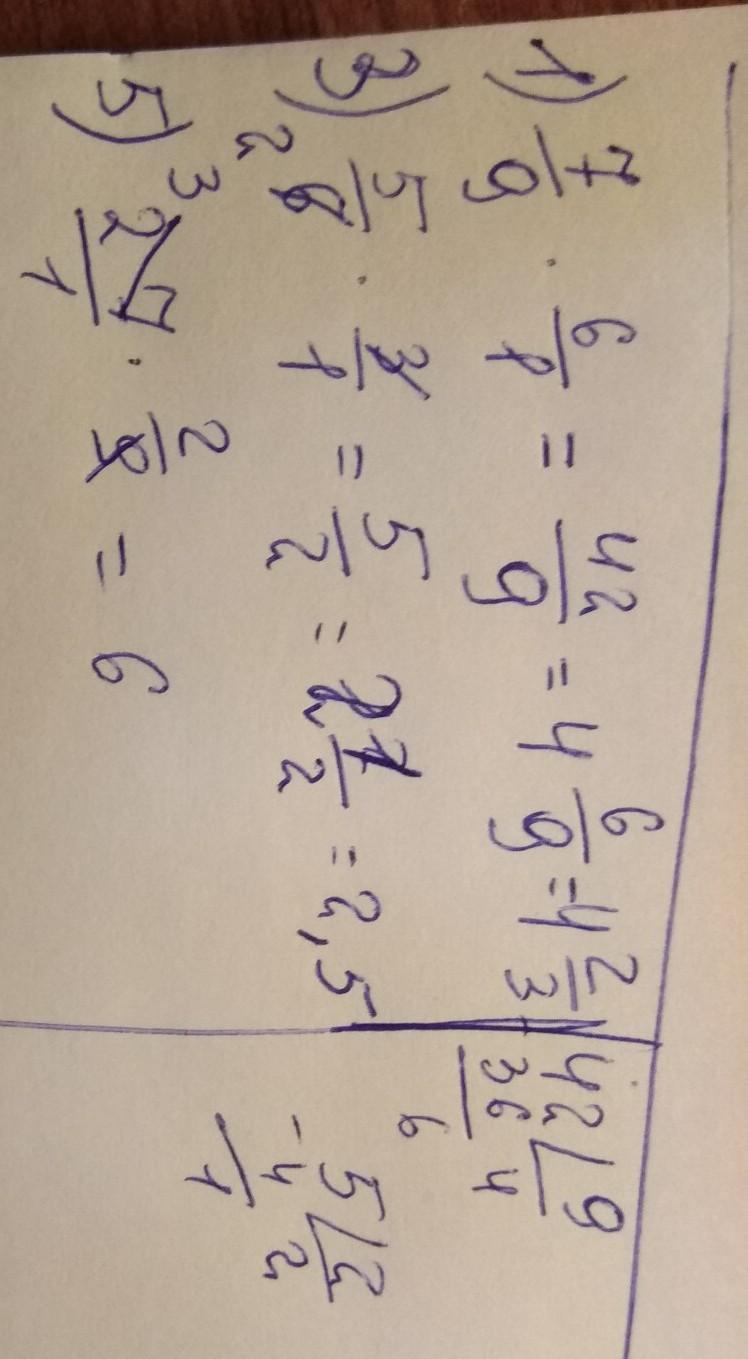 1) 7/9 · 6/1 = 42/9 = 4 6/9 = 4 2/3
3) 5/6 · 3/1 = 5/2 = 2 1/2 = 2,5
2
5) 27/1 · 2/9 = 6
3
42 | 9
36 4
6
5 | 2
-4 2
1